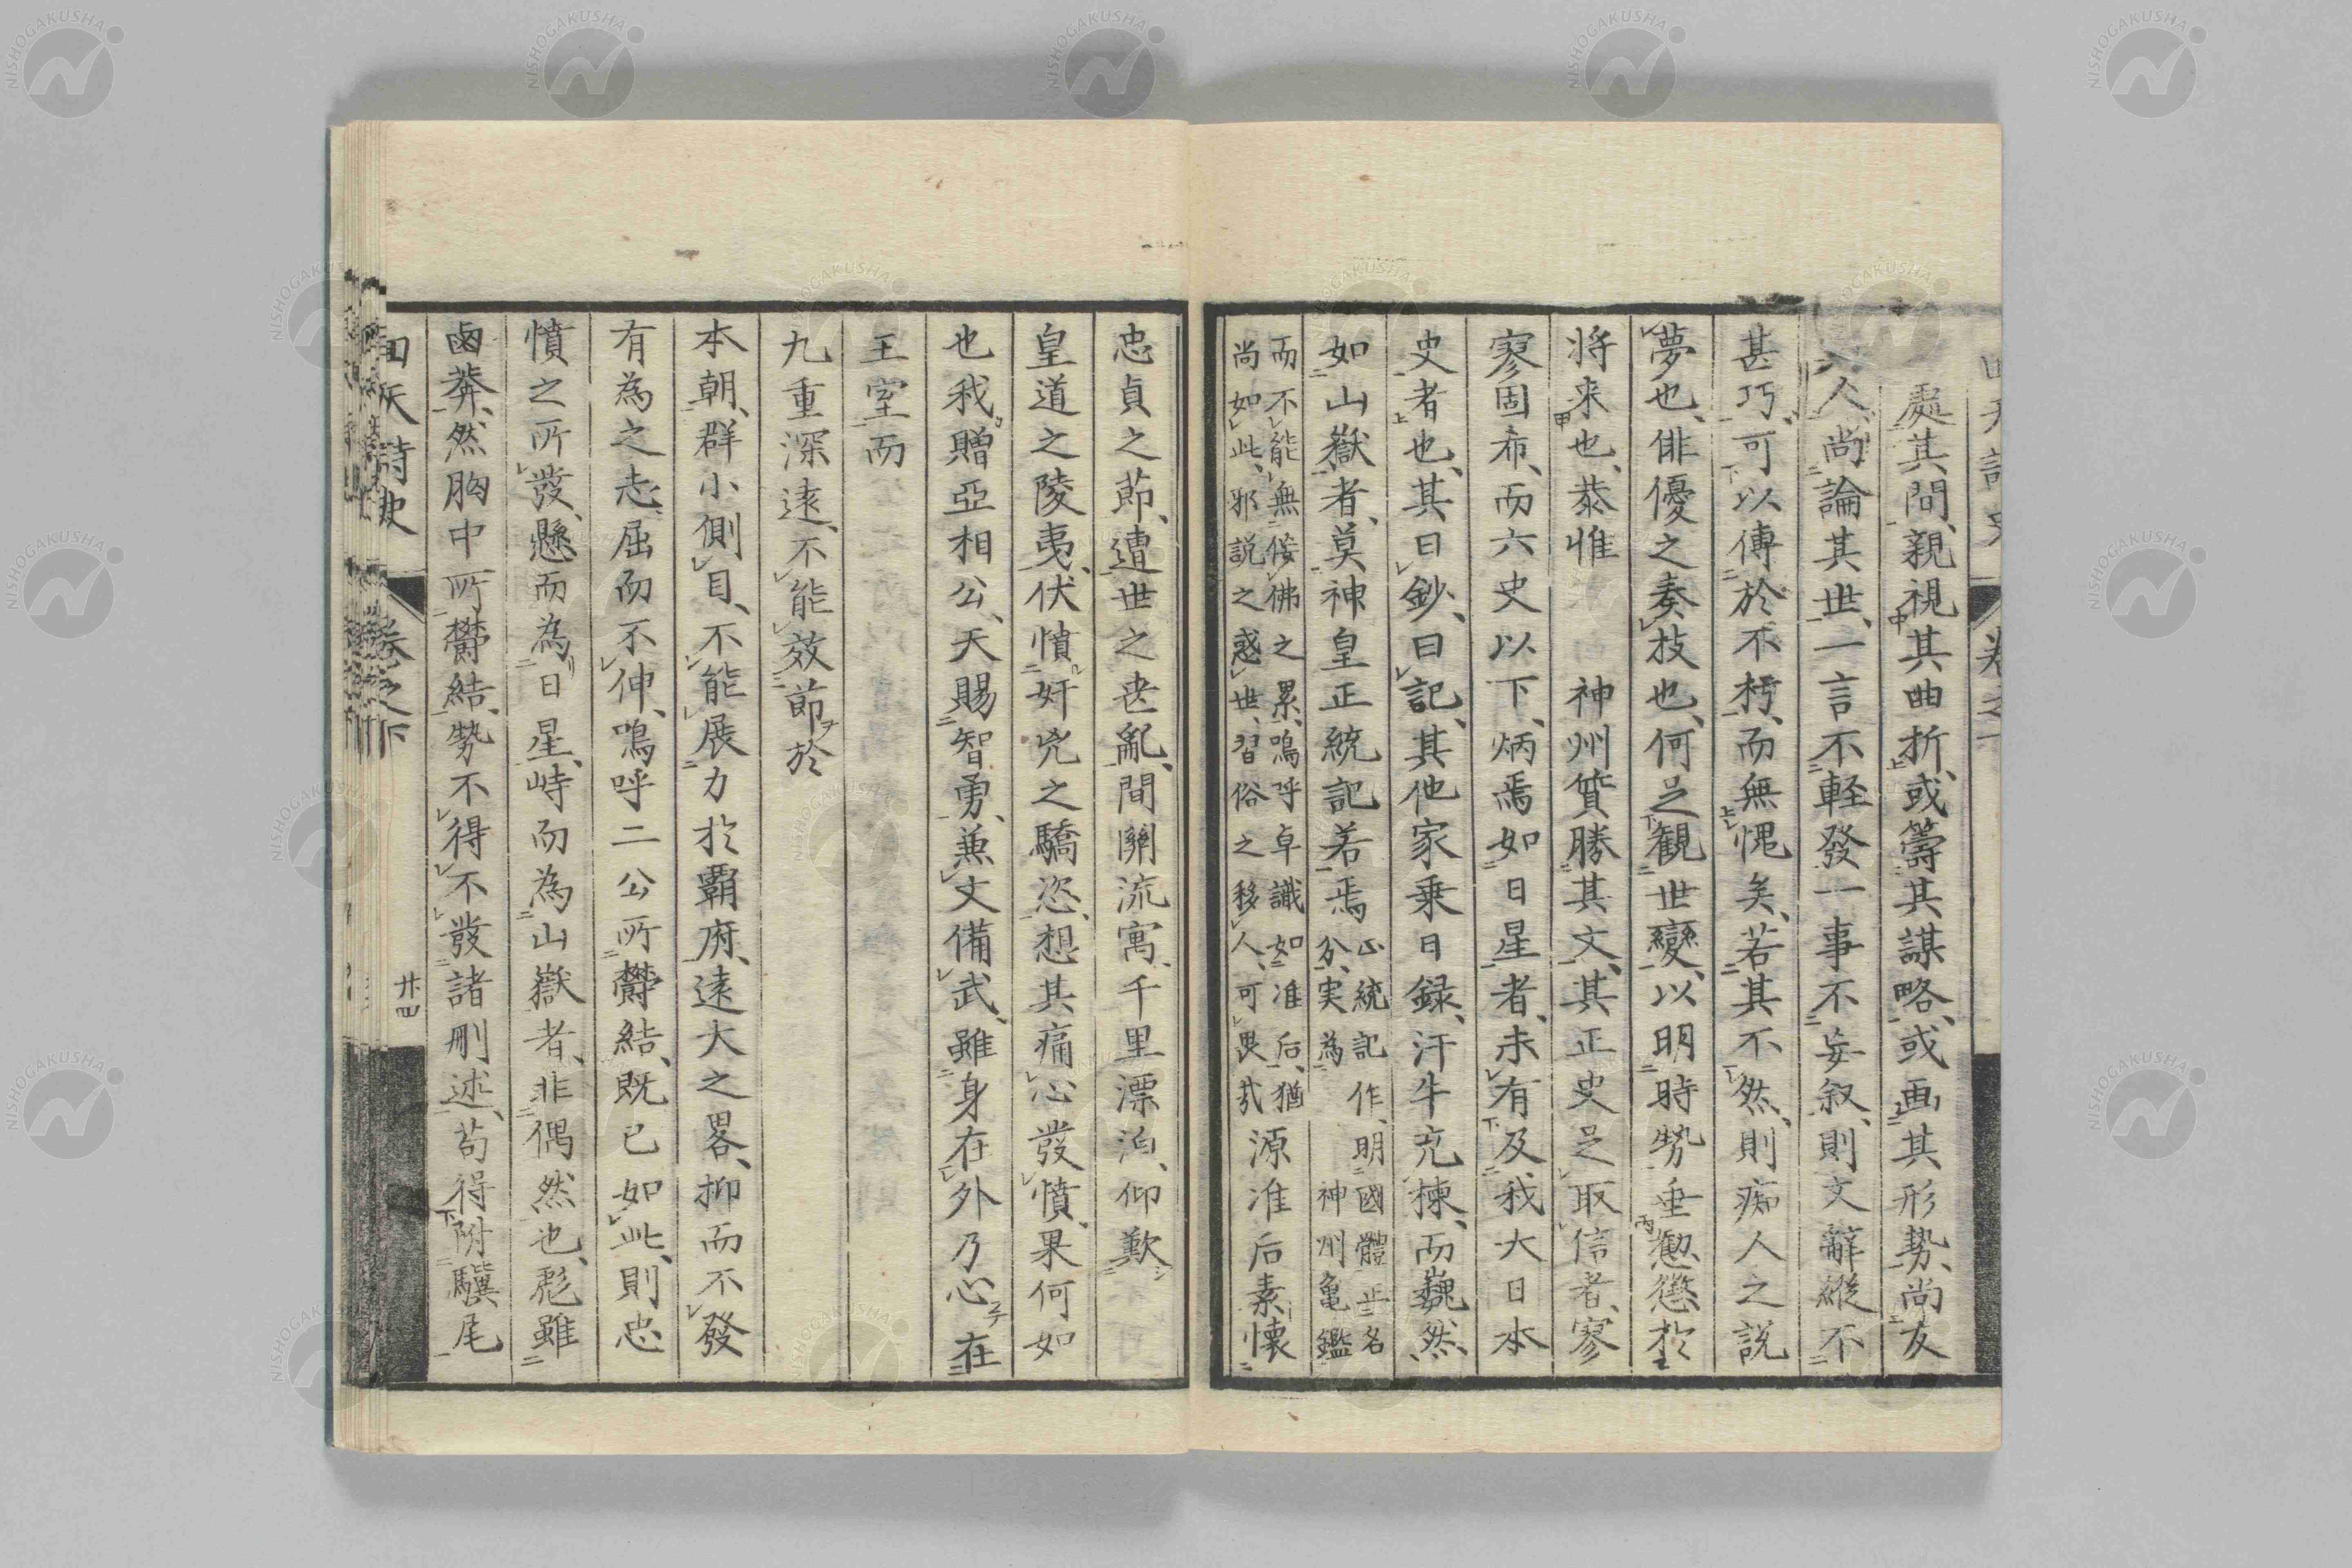 處其間、親視其曲折、或籌其謀略、或画其形勢、尚友
人、尚論其世、一言不軽發一事不妄叙、則文辭縱不
甚巧、可以傳於不朽、而無愧矣、若其不然、則痴人之説
夢也、俳優之奏技也、何足観世變、以明時勢垂懃懲於
将来也、恭惟　神州質勝其文、其正史足取信者、寥
寥固布、而六史以下、炳焉如日星者、未有及我大日本
史者也、其曰鈔、曰記、其他家乗日録、汗牛充棟、而巍然、
如山嶽者、莫神皇正統記若焉
正統記作、明國體正名
分、実為　神州亀鑑
而不能無佞佛之累、嗚呼卓識如准后、猶
尚如此、邪説之惑世、習俗之移人、可畏哉
源准后素懐
忠貞之節、遭世之喪亂、間關流寓、千里漂泊、仰歎
皇道之陵夷、伏憤奸兇之驕恣、想其痛心發憤、果何如
也我贈亞相公、天賜智勇、兼文備武、雖身在外乃心在
王室而
九重深遠、不能效節於
本朝、群小側目、不能展力於覇府、遠大之畧、抑而不發
有為之志、屈而不伸、鳴呼二公所欝結、既已如此、則忠
憤之所發、懸而為日星、峙而為山嶽者、非偶然也、彪雖
鹵莽、然胸中所欝結、勢不得不發諸刪述、苟得附驥尾
回天詩史　卷之下　廿四